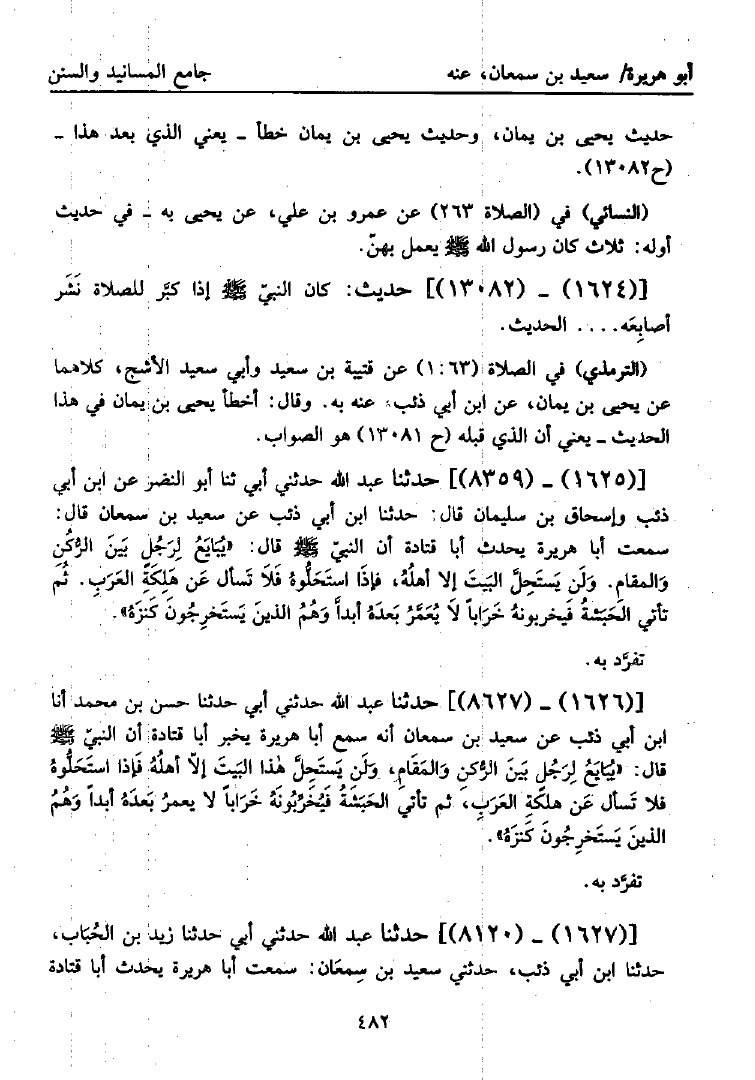 أبو هريرة/ سعيد بن سمعان، عنه جامع المسانيد والسنن
حديث يحيى بن يمان، وحديث يحيى بن يمان خطأ ـ يعني الذي بعد هذا ـ
(ح١٣٠٨٢).
(النسائي) في (الصلاة ٢٦٣) عن عمرو بن علي، عن يحيى به ـ في حديث
أوله: ثلاث كان رسول الله ﷺ يعمل بهنّ.
[(١٦٢٤) ـ (١٣٠٨٢)] حديث: كان النبيّ ﷺ إذا كبَّر للصلاة نَشَر
أصابِعَه.... الحديث.
(الترمذي) في الصلاة (١:٦٣) عن قتيبة بن سعيد وأبي سعيد الأشج، كلاهما
عن يحيى بن يمان، عن ابن أبي ذئب، عنه به. وقال: أخطأ يحيى بن يمان في هذا
الحديث ـ يعني أن الذي قبله (ح ١٣٠٨١) هو الصواب.
[(١٦٢٥) ـ (٨٣٥٩)] حدثنا عبد الله حدثني أبي ثنا أبو النضر عن ابن أبي
ذئب وإسحاق بن سليمان قال: حدثنا ابن أبي ذئب عن سعيد بن سمعان قال:
سمعت أبا هريرة يحدث أبا قتادة أن النبيّ ﷺ قال: «يُبَايَعُ لِرَجُلٍ بَينَ الرُّكْنِ
وَالمقام. وَلَن يَستَحِلَّ البَيتَ إلا أهلُهُ، فإذا استَحَلُّوهُ فَلَا تَسأل عَن هَلِكَةِ العَرَبِ. ثُم
تأتي الحَبَشَةُ فَيخربونهُ خَرَاباً لَا يُعَمَّرُ بَعدَهُ أبداً وَهُمُ الذينَ يَستَخرِجُونَ كَنزَهُ».
تفرَّد به.
[(١٦٢٦) ـ (٨٦٢٧)] حدثنا عبد الله حدثني أبي حدثنا حسن بن محمد أنا
ابن أبي ذئب عن سعيد بن سمعان أنه سمع أبا هريرة يخبر أبا قتادة أن النبيّ ﷺ
قال: «يُبَايَعُ لِرَجُلٍ بَينَ الرُّكنِ وَالمَقَامِ، وَلَن يَستَحِلَّ هٰذا البَيتَ إلاّ أهلُهُ فَإذا استَحَلُّوهُ
فلا تَسأل عَن هلكَةِ العَرَبِ، ثم تأتي الحَبَشَةُ فَيُخَرِّبُونَهُ خَرَاباً لا يعمرُ بَعدَهُ أبداً وَهُمُ
الذينَ يَستَخرِجُونَ كَنزَهُ».
تفرَّد به.
[(١٦٢٧) ـ (٨١٢٠)] حدثنا عبد الله حدثني أبي حدثنا زيد بن الحُبَاب،
حدثنا ابن أبي ذئب، حدثني سعيد بن سِمعَان: سمعت أبا هريرة يحدث أبا قتادة
٤٨٢